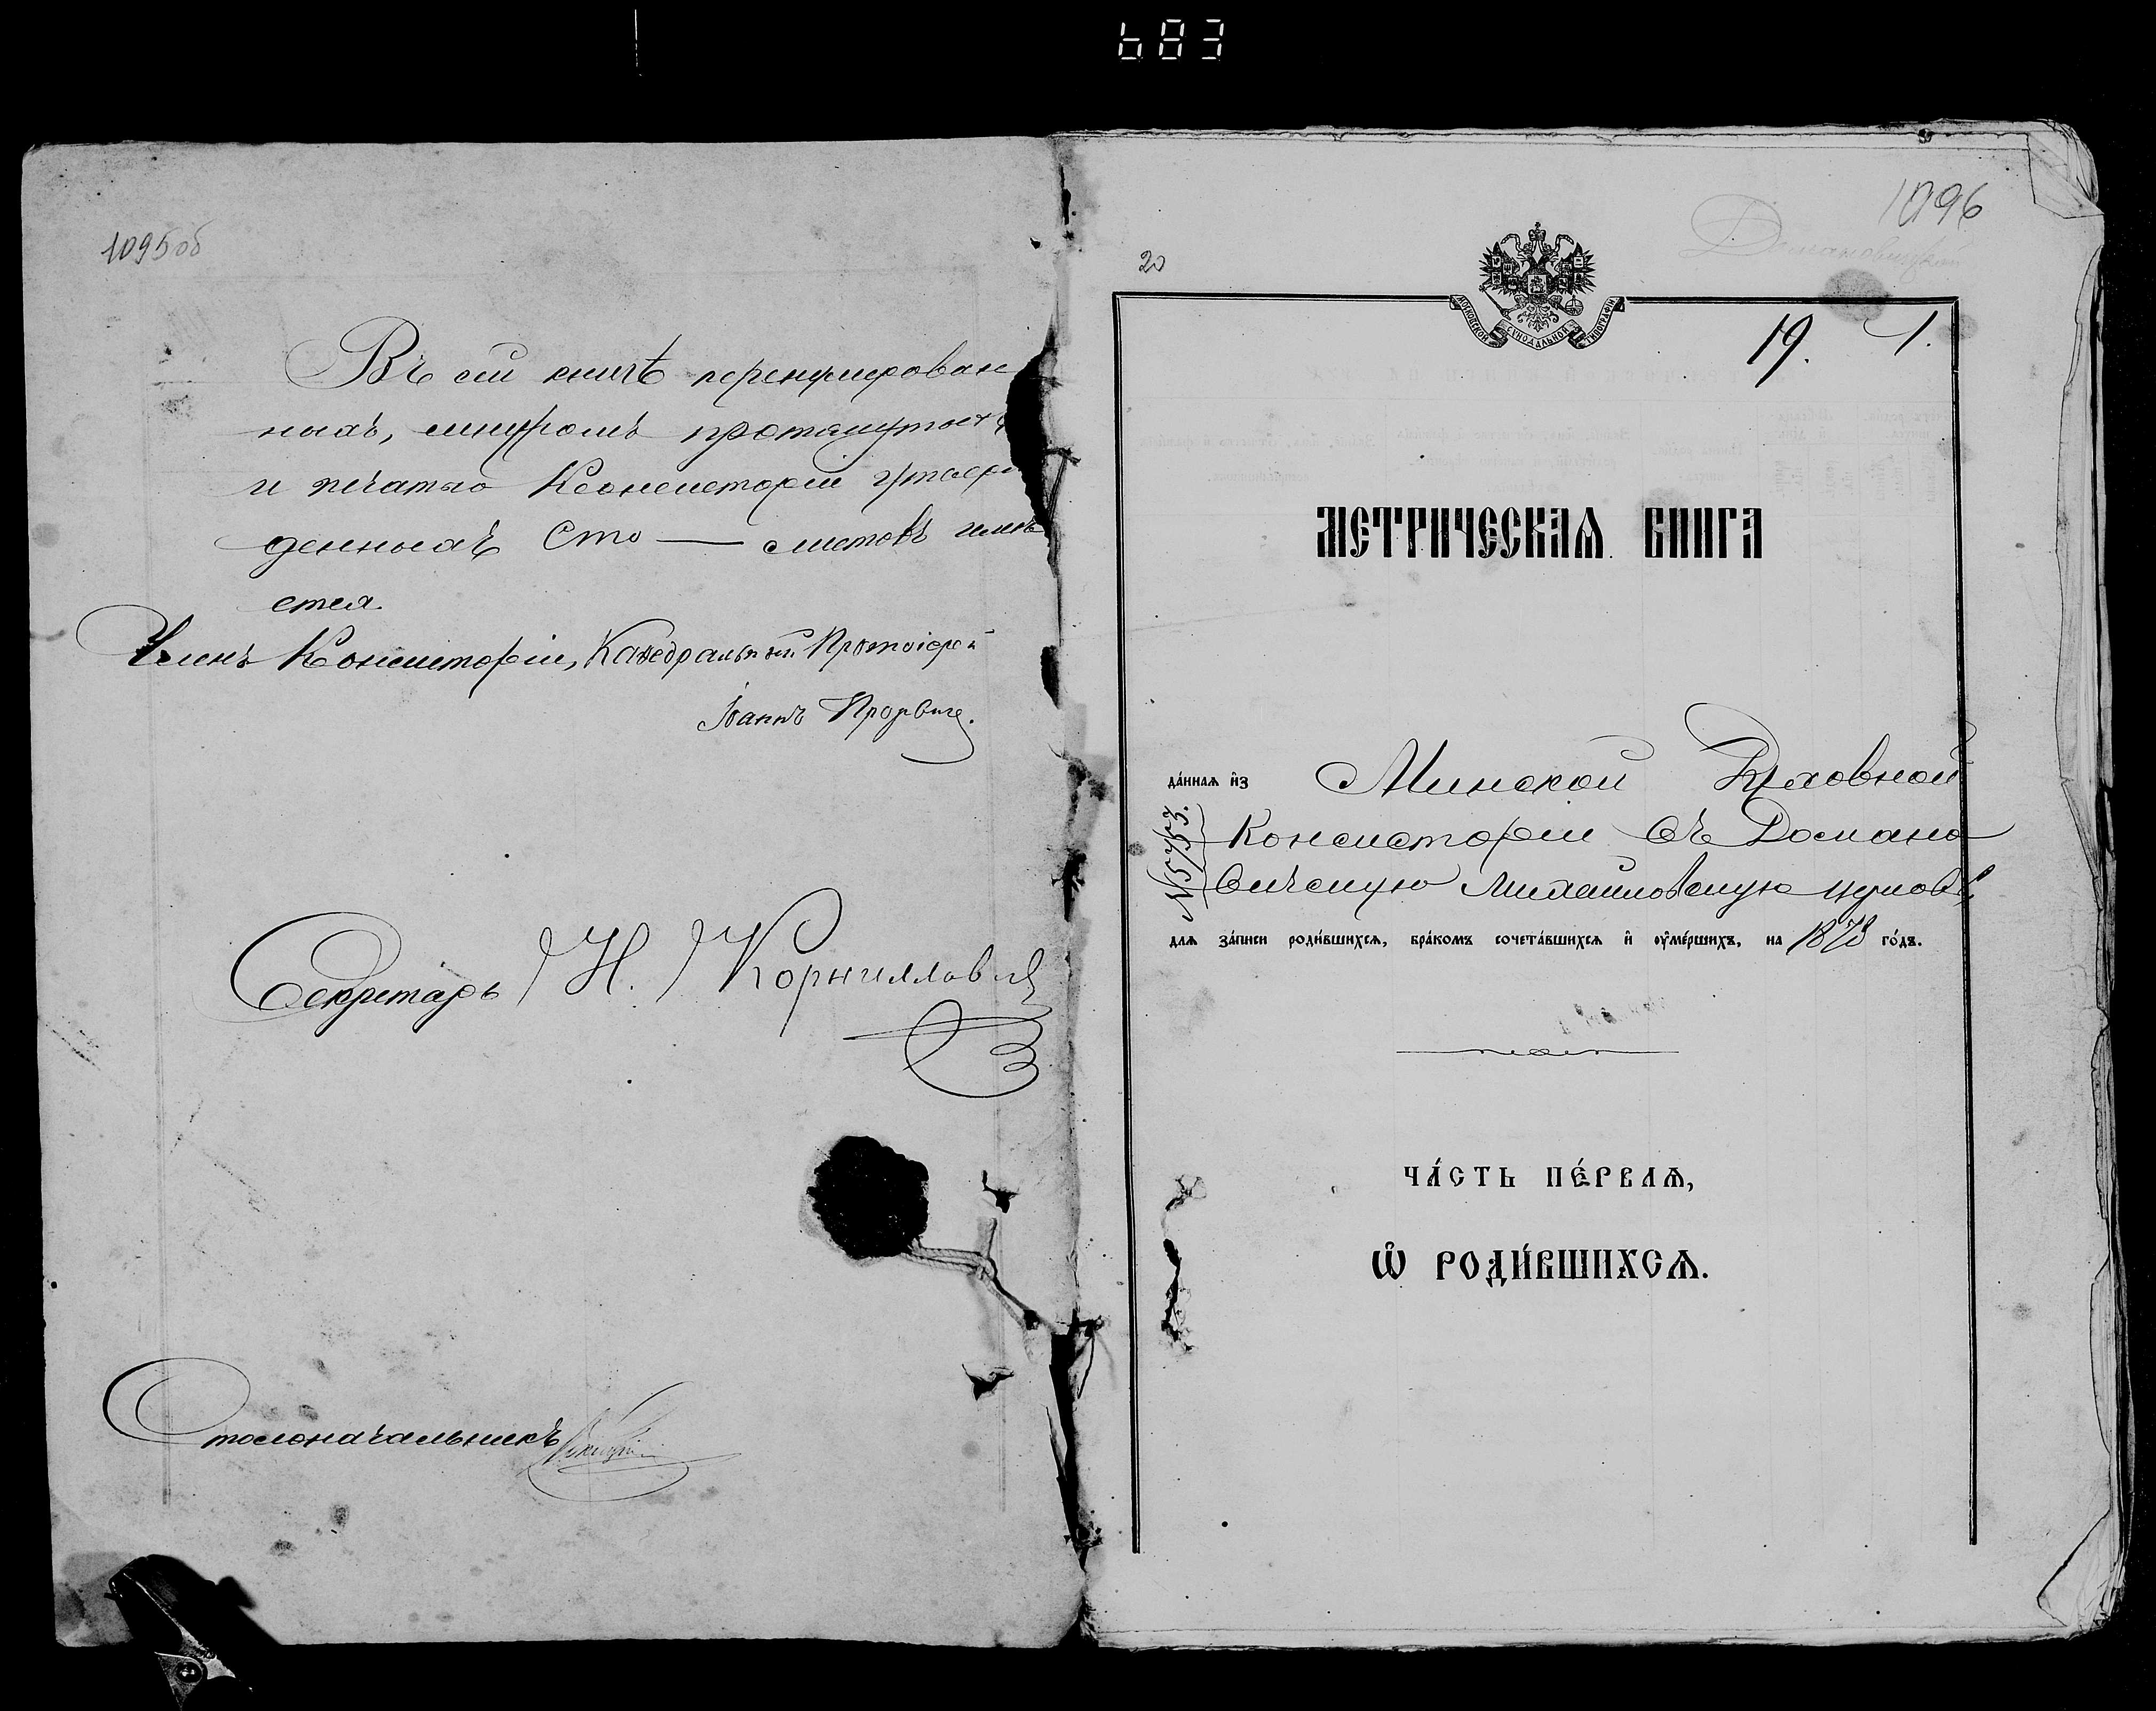 683
1095об
Въ сей книгѣ перенумерован
ныхъ, шнуромъ протянутыхъ
и печатью Консисторіи утвер
денныхъ Сто — листовъ имѣ
ется
Членъ Консисторіи, Каѳедральный Протоіерей
Іоаннъ
Секретарь Н. Корниллович
Столоначальникъ
1096
20
МОСКОВСКОЙ СѴНОДАЛЬНОЙ ТИПОГРАФІИ
19. 1.
МЕТРИЧЕСКАѦ КНИГА
да́ннаѧ и҆з Минской Духовной
№ 5753.
Консисторіи въ Домано
вичскую Михайловскую церковь,
длѧ за́писи роди́вшихсѧ, бра́комъ сочета́вшихсѧ и҆ ᲂу҆ме́ршихъ, на 1878 го́дъ.
ЧА́СТЬ ПЕ́РВАѦ,
Ѡ҆ РОДИ́ВШИХСѦ.